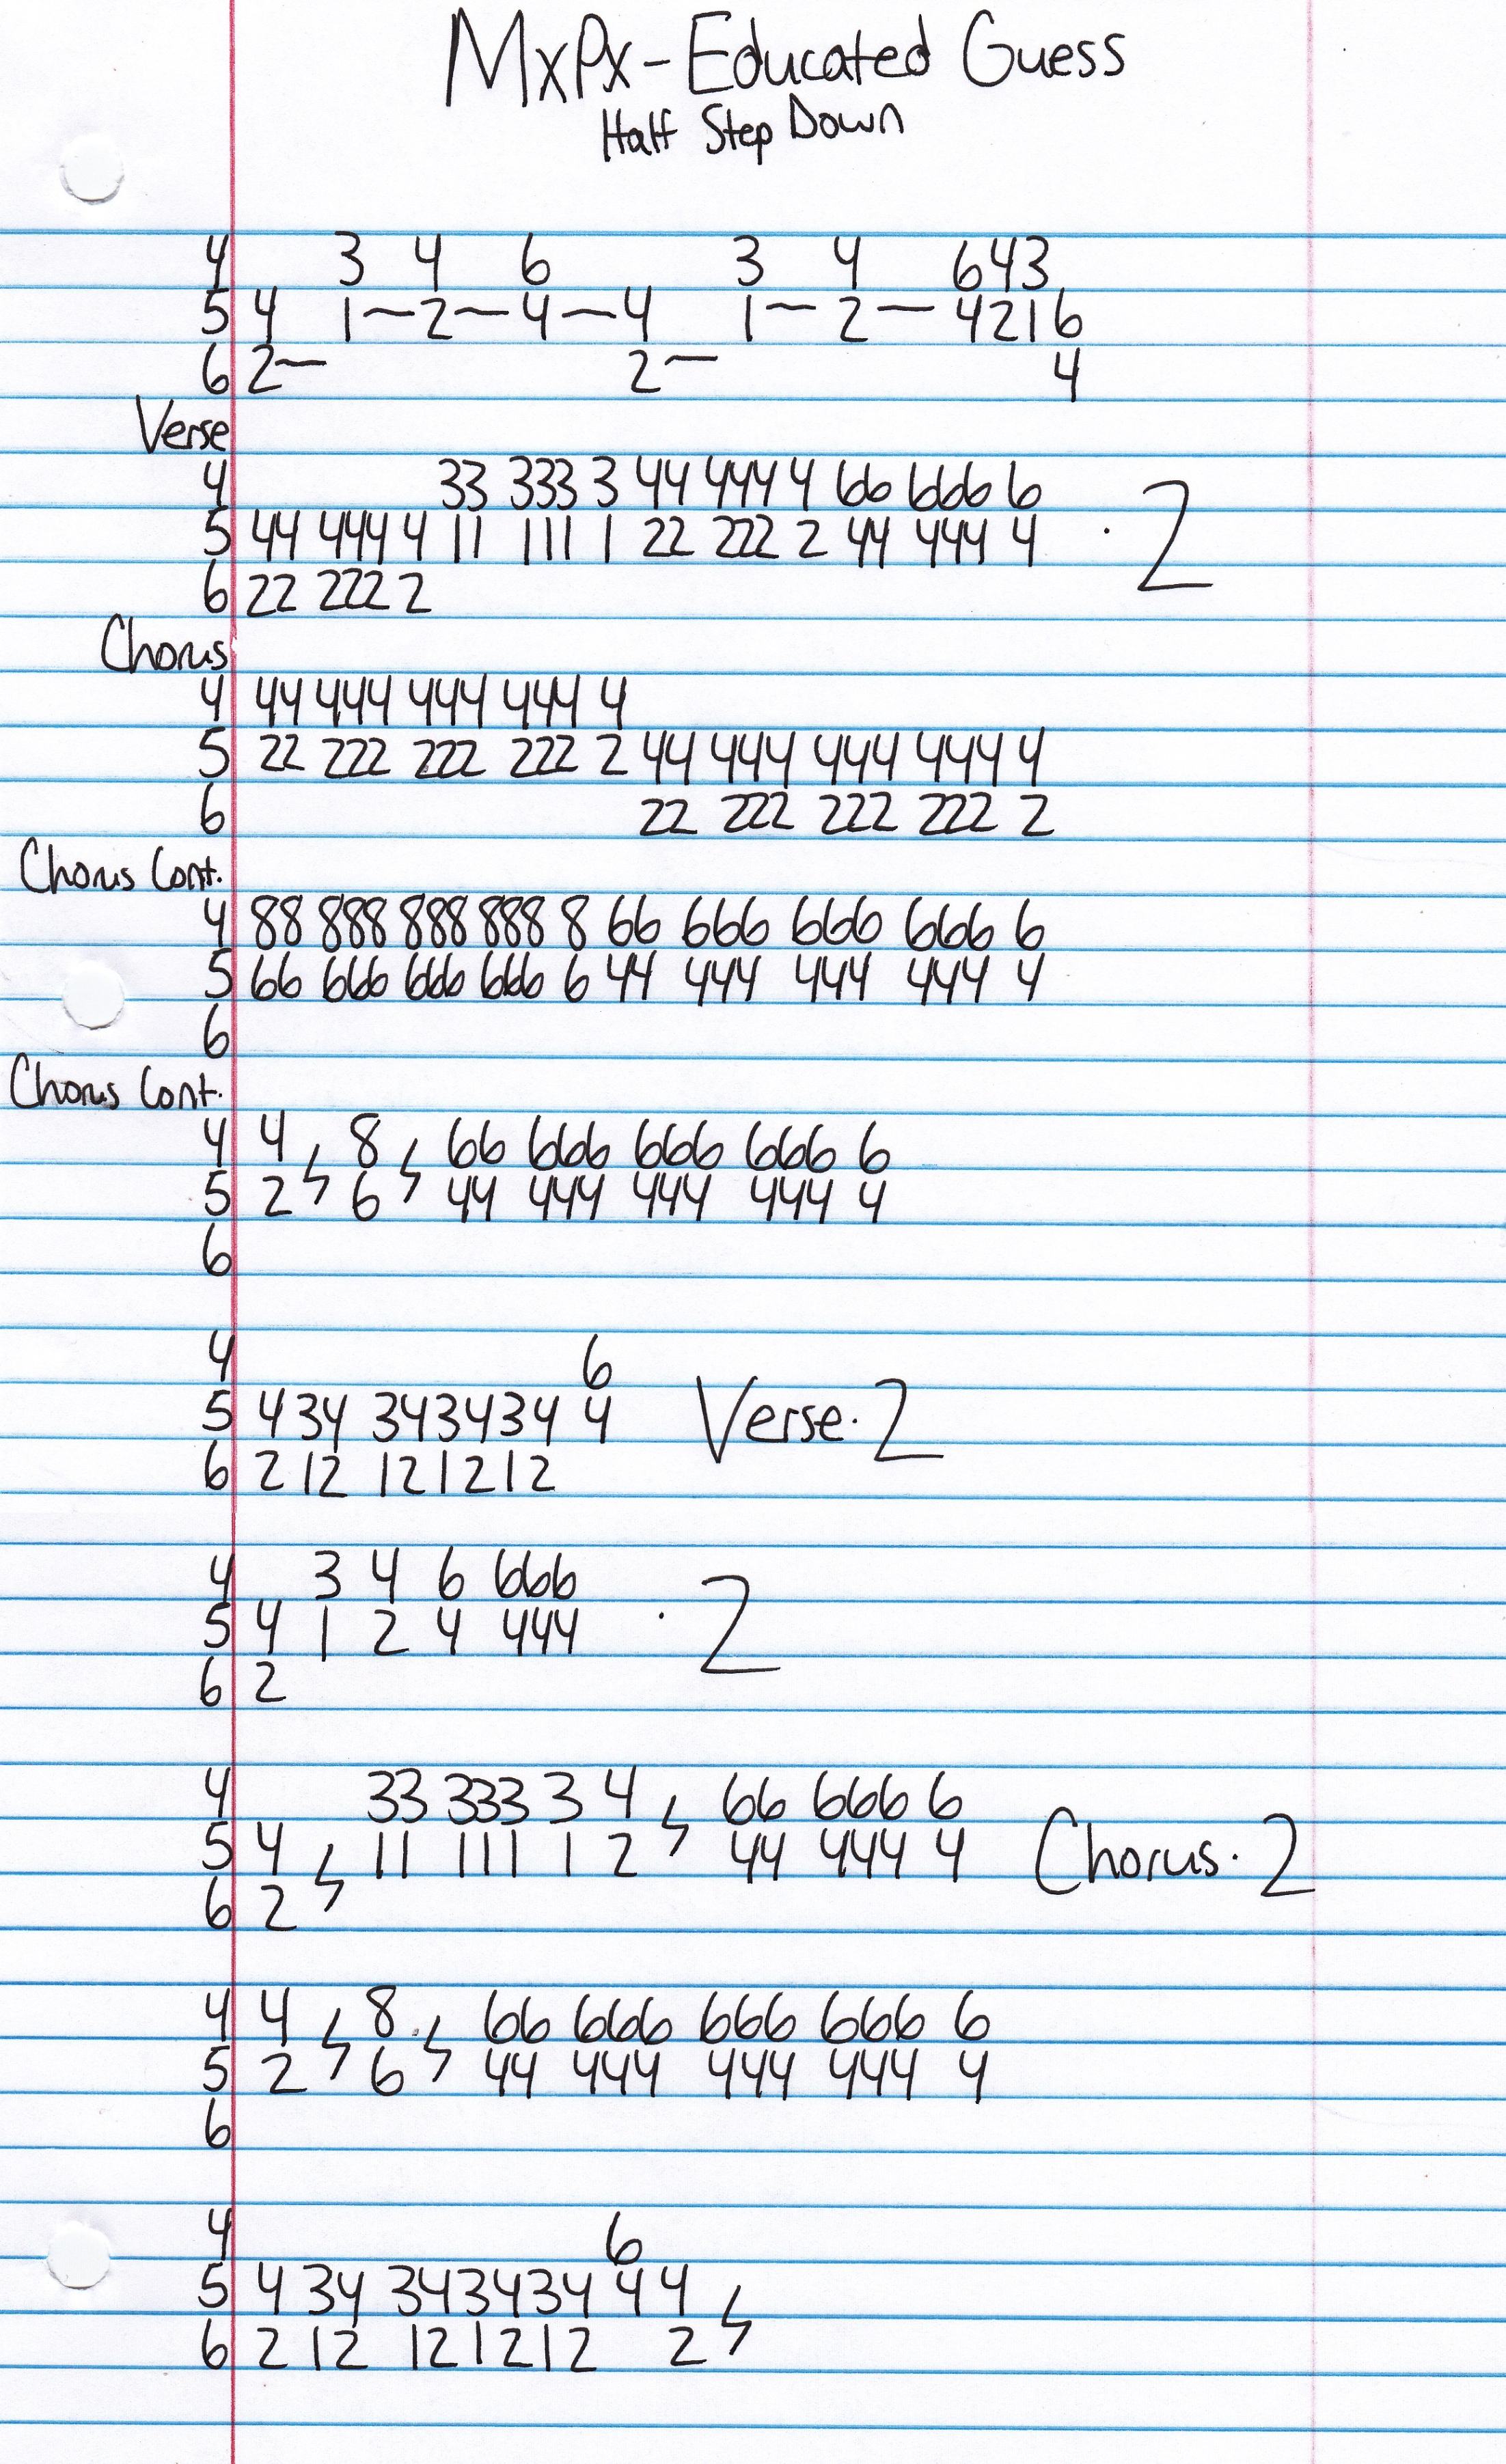 MxPx - Educated Guess
Half Step Down
4 3 4 6 3 4 643
5 4 1~2~4~4 1~2~4216
6 2~ 2~ 4
Verse
4 33 333 3 44 444 4 66 666 6
5 44 444 4 11 111 1 22 222 2 44 444 4 · 2
6 22 222 2
Chorus
4 44 444 444 444 4
5 22 222 222 222 2 44 444 444 4444 4
6 22 222 222 222 2
Chorus Cont.
4 88 888 888 888 8 66 666 666 666 6
5 66 666 666 666 6 44 444 444 444 4
6
Chorus Cont.
4 4 8 66 666 666 666 6
5 2 6 44 444 444 444 4
6
4 6
5 4 34 343434 4 Verse · 2
6 2 12 121212
4 3 4 6 666
5 4 1 2 4 444 · 2
6 2
4 33 333 3 4 66 666 6
5 4 11 111 1 2 44 444 4 Chorus · 2
6 2
4 4 8 66 666 666 666 6
5 2 6 44 444 444 444 4
6
4 6
5 4 34 343434 4 4
6 2 12 121212 2